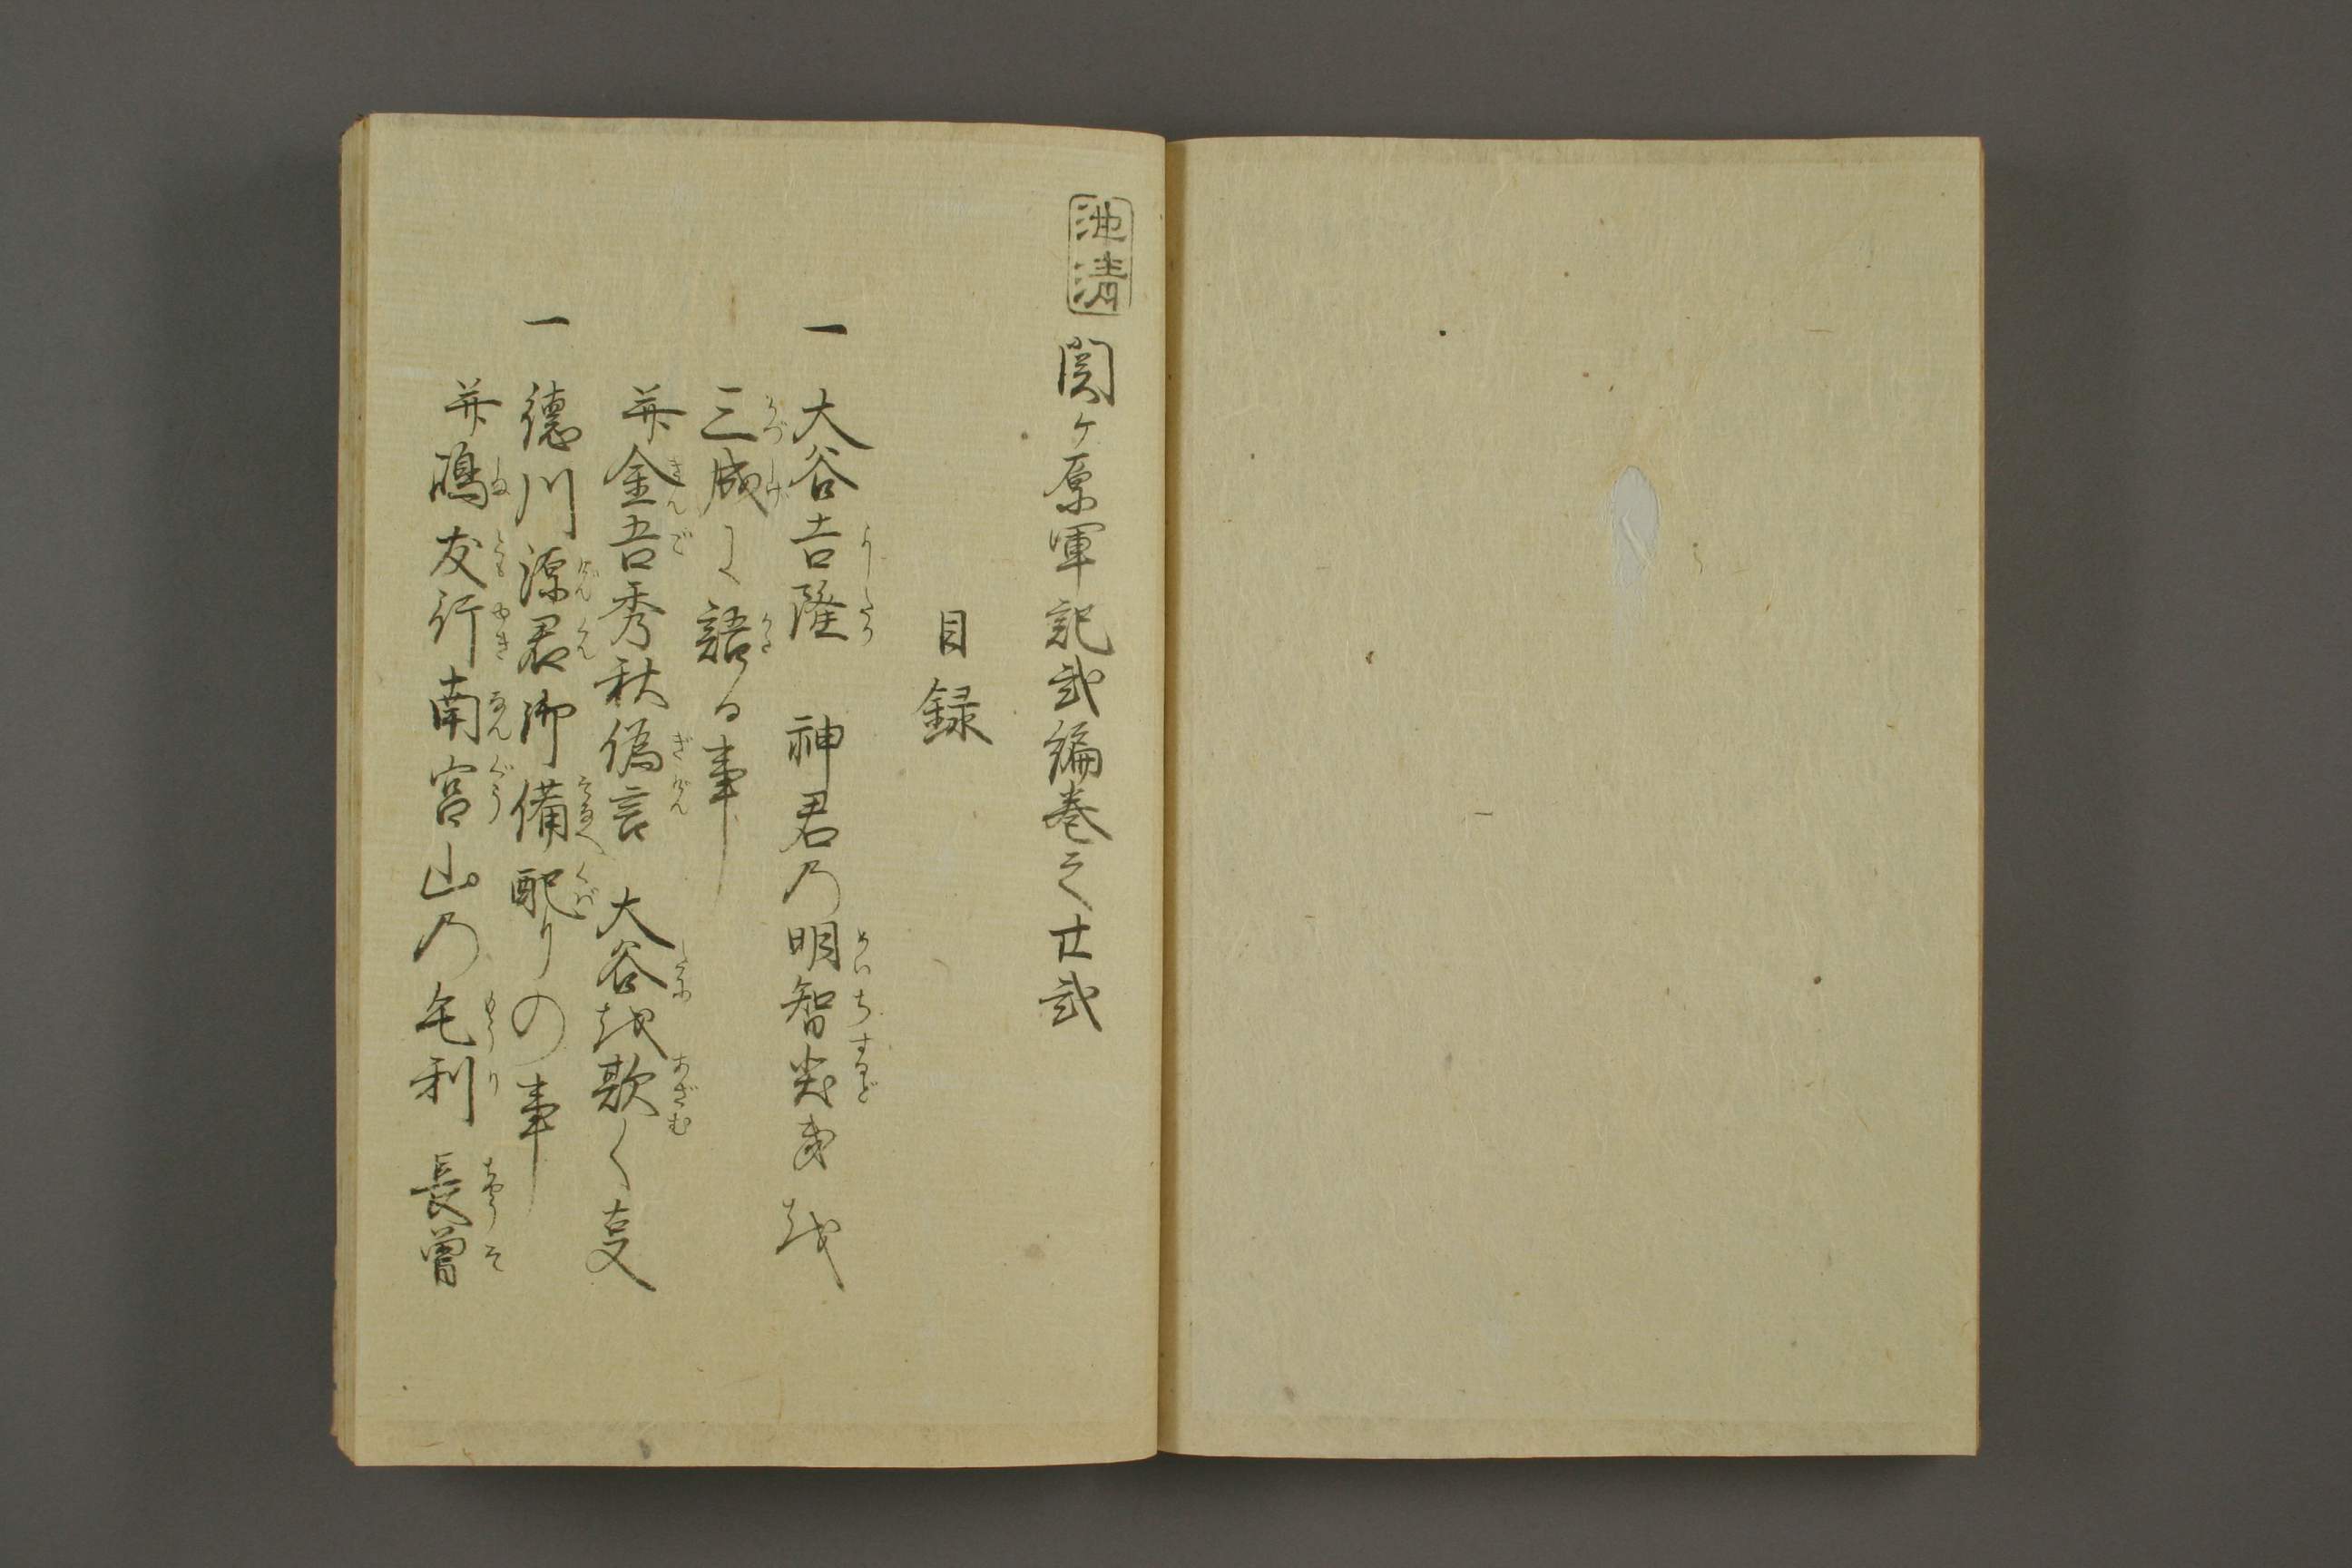 池清
関ヶ原軍記弐編巻之廿弐
目録
一 大谷吉隆 神君乃明智発を越
三成に語る事
并金吾秀秋偽言 大谷越欺く事
一 徳川源君御備配りの事
并嶋友行南宮山乃毛利 長曽